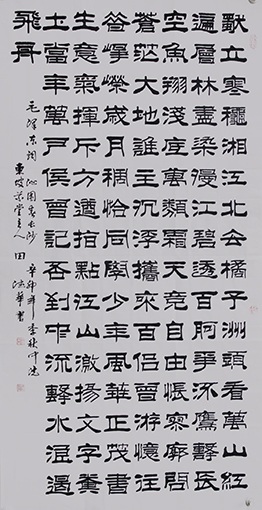 獨立寒穐湘江北去橘子洲頭看萬山紅
遍層林盡染漫江碧透百舸爭流鷹擊長
空魚翔淺底萬類霜天競自由悵寥廓問
蒼茫大地誰主沉浮攜來百侶曾游憶往
昔崢嶸歲月稠恰同學少年風華正茂書
生意氣揮斥方遒指點江山激揚文字糞
土當年萬戶侯曾記否到中流擊水浪遏
飛舟
毛澤東詞沁園春長沙辛卯年季秋
東坡堂主人田華書